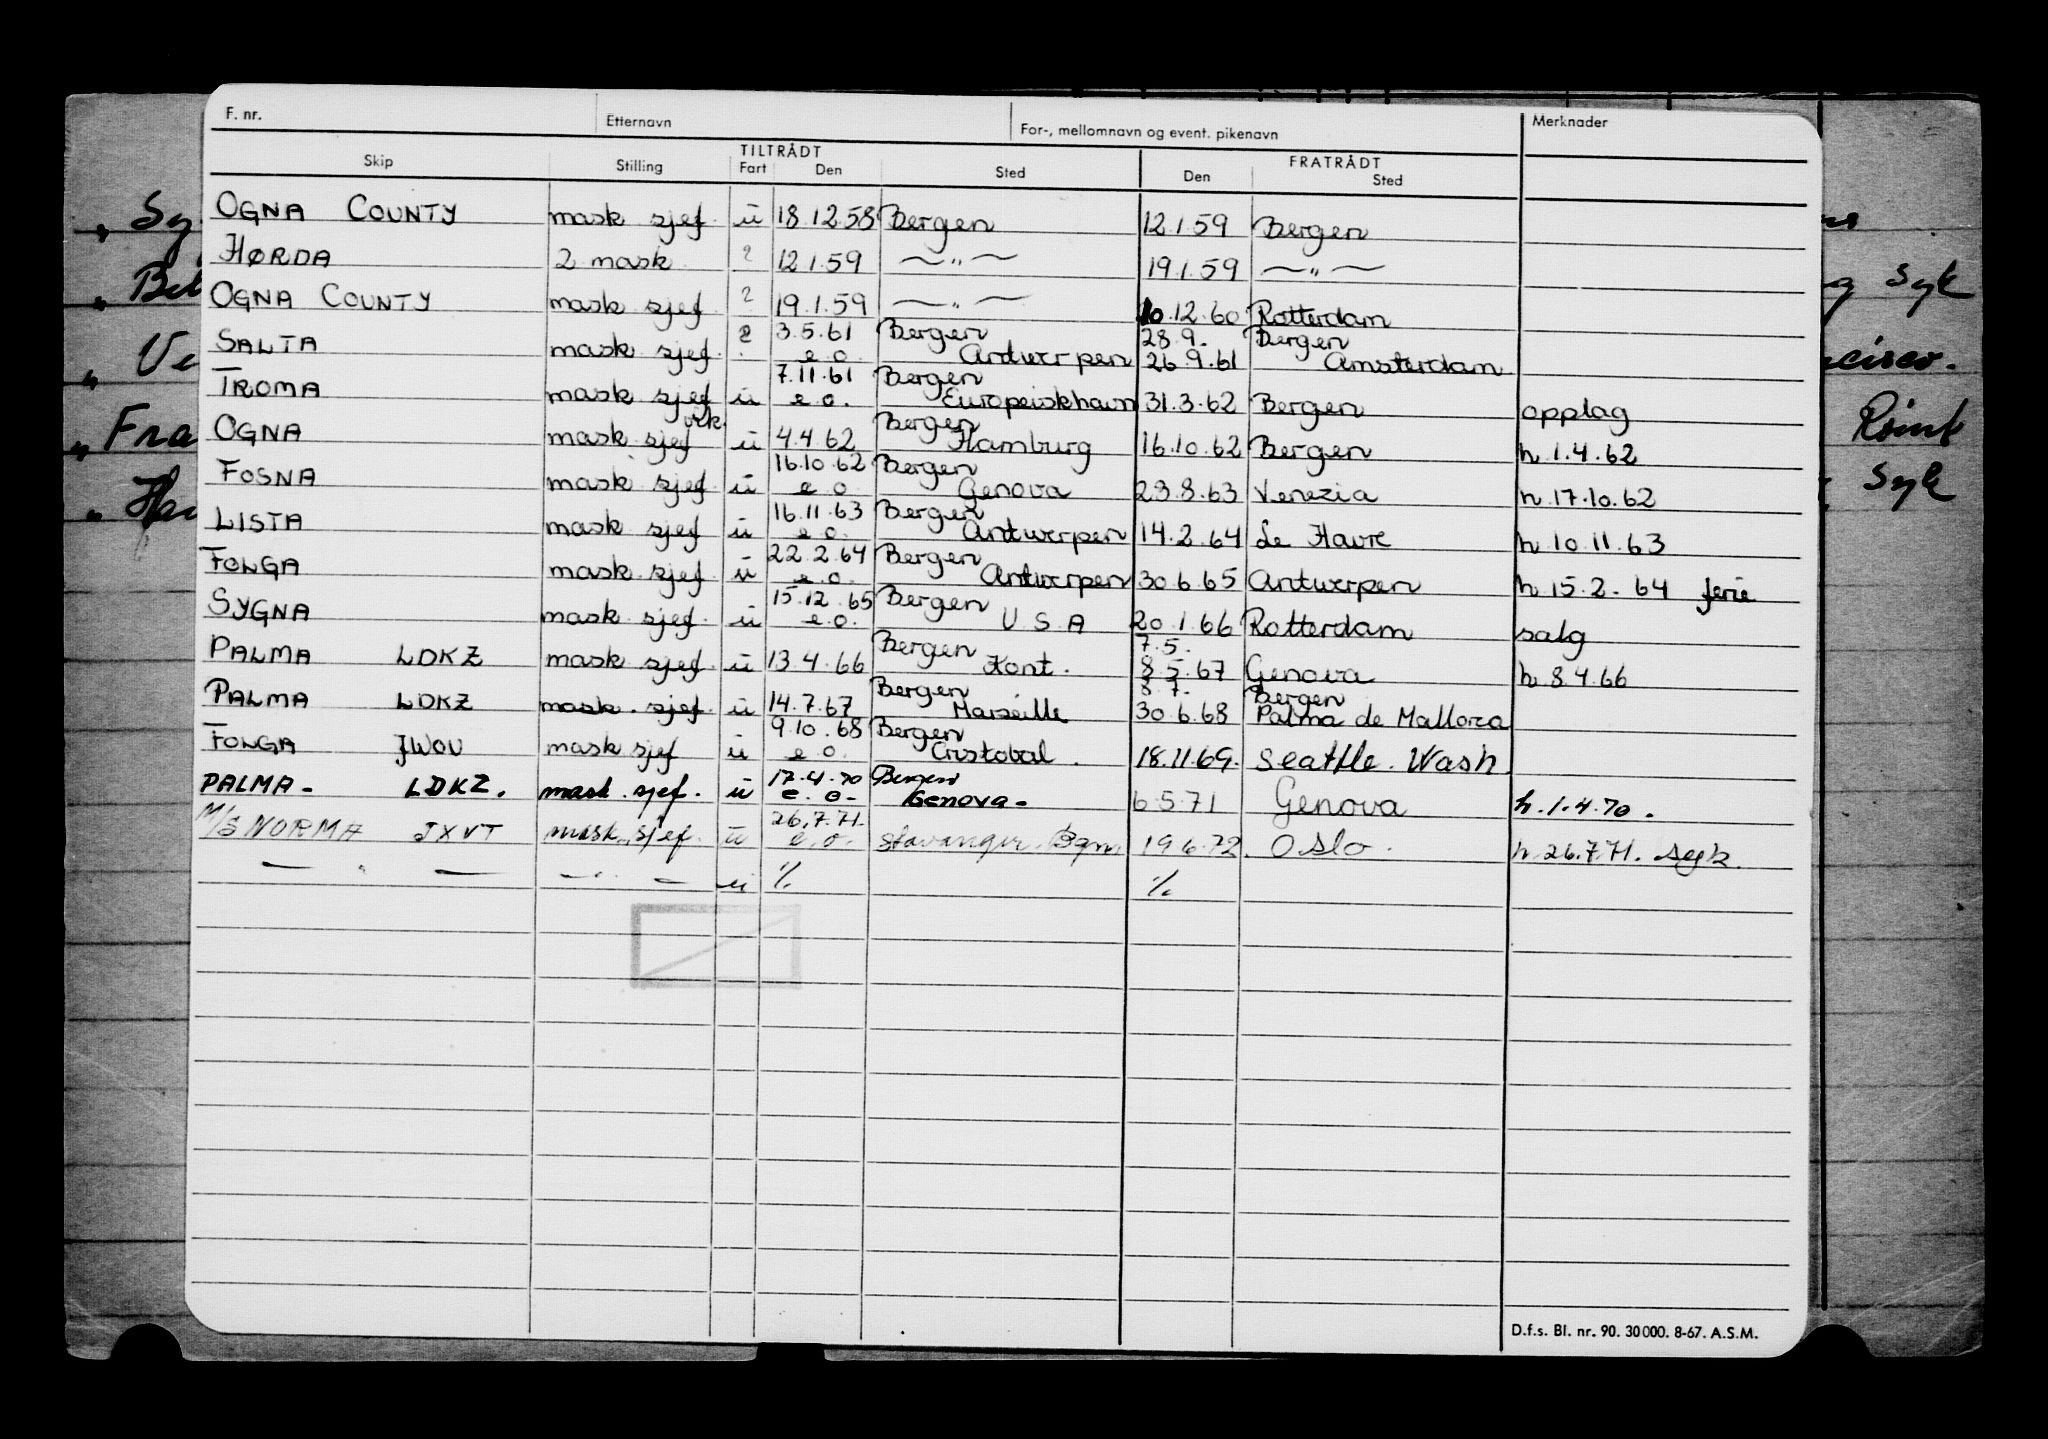 F. nr. Etternavn For-, mellomnavn og event. pikenavn Merknader
TILTRÅDT FRATRÅDT
Skip Stilling Fart Den Sted Den Sted
OGNA COUNTY mask sjef. ü 18.12.58 Bergen 12.1.59 Bergen
HØRDA 2 mask ? 12.1.59 —〃— 19.1.59 —〃—
OGNA COUNTY mask sjef ? 19.1.59 —〃— 10.12.60 Rotterdam
3.5.61 Bergen 28.9. Bergen
SALTA mask sjef. ? e.o. Antwerpen 26.9.61 Amsterdam
7.11.61 Bergen
TROMA mask sjef ü e.o. Europeiskhavn 31.3.62 Bergen opplag
vik. Bergen
OGNA mask sjef ü 4.4.62 Hamburg 16.10.62 Bergen h.1.4.62
16.10.62 Bergen
FOSNA mask sjef. ü e.o. Genova 23.8.63 Venezia h.17.10.62
16.11.63 Bergen
LISTA mask sjef ü e.o. Antwerpen 14.2.64 Le Havre h 10.11.63
22.2.64 Bergen
FOLGA mask sjef. ü e.o. Antwerpen 30.6.65 Antwerpen h.15.2.64 ferie
15.12.65 Bergen
SYGNA mask sjef. ü e.o. U S A 20.1.66 Rotterdam salg
Bergen 7.5.
PALMA LDKZ mask sjef. ü 13.4.66 Kont. 8.5.67 Genova h.8.4.66
Bergen 8.7. Bergen
PALMA LDKZ mask. sjef. ü 14.7.67 Marseille 30.6.68 Palma de Mallorca
9.10.68 Bergen
FOLGA JWOU mask sjef ü e.o. Cristobal. 18.11.69. Seattle. Wash.
17.4.70 Bergen
PALMA- LDKZ. mask. sjef. ü e.o- Genova- 6.5.71 Genova h.1.4.70.
26.7.71.
M/S NORMA JXVT mask. sjef. ü e.o. Stavanger. Bgn. 19.6.72. Oslo. h.26.7.71. syk.
— 〃 — —〃— ü ⁒ ⁒
D.f.s. Bl. nr. 90. 30000. 8-67. A.S.M.